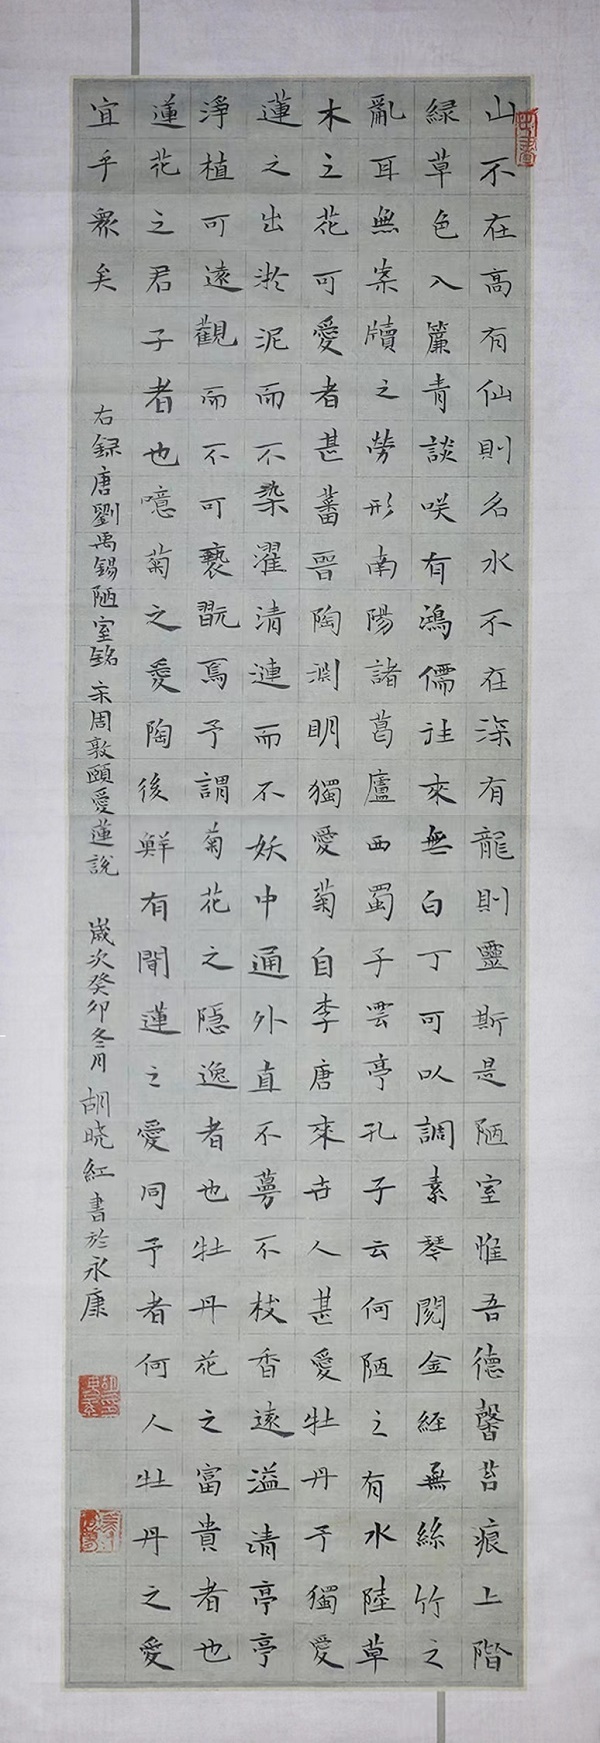 山不在高有仙則名水不在深有龍則靈斯是陋室惟吾德馨苔痕上階
緑草色入簾青談咲有鴻儒往來無白丁可以調素琴閱金經無絲竹之
亂耳無案牘之勞形南陽諸葛廬西蜀子雲亭孔子云何陋之有水陸草
木之花可愛者甚蕃晉陶淵明獨愛菊自李唐來世人甚愛牡丹予獨愛
蓮之出淤泥而不染濯清漣而不妖中通外直不蔓不枝香遠溢清亭亭
淨植可遠觀而不可褻翫焉予謂菊花之隱逸者也牡丹花之富貴者也
蓮花之君子者也噫菊之愛陶後鮮有聞蓮之愛同予者何人牡丹之愛
宜乎衆矣
右録唐劉禹錫陋室銘 宋周敦頤愛蓮說 歲次癸卯冬月胡曉紅書於永康